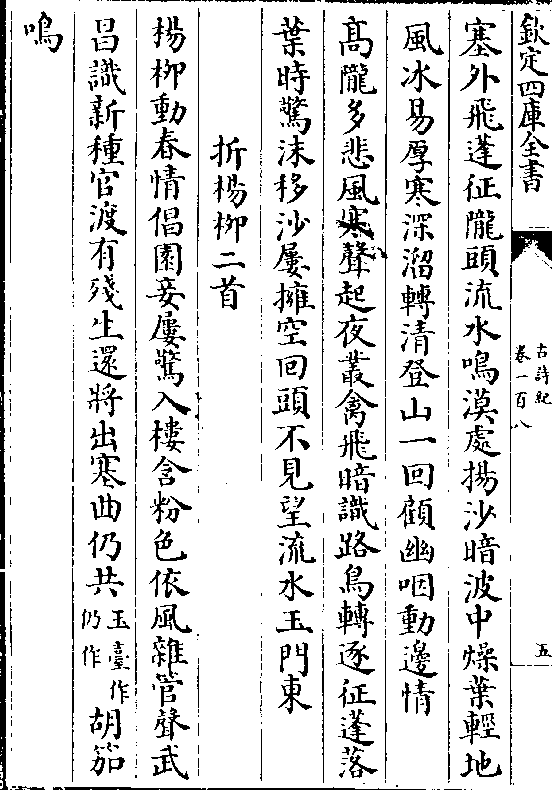 欽定四庫全書
古詩紀
卷一百八
五
塞外飛蓬征隴頭流水鳴漠處揚沙暗波中燥葉輕地
風冰易厚寒深溜轉清登山一回顧幽咽動邊情
髙隴多悲風寒聲起夜叢禽飛暗識路鳥轉逐征蓬落
葉時驚沫移沙屢擁空回頭不見望流水玉門東
折楊柳二首
楊柳動春情倡園妾屢驚入樓含粉色依風雜管聲武
昌識新種官渡有殘生還將出塞曲仍共玉臺作仍作胡笳
鳴